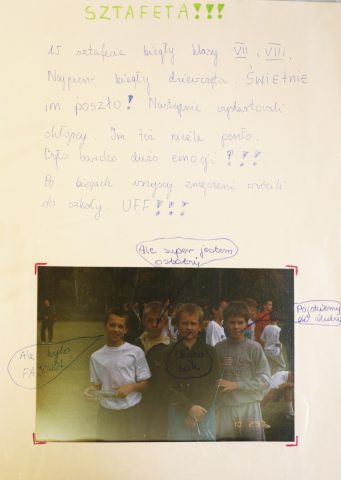 SZTAFETA!!!
W sztafecie biegły klasy VII i VIII.
Najpierw biegły dziewczęta. ŚWIETNIE
im poszło! Następnie wystartowali
chłopcy. Im też nieźle poszło.
Było bardzo dużo emocji !!!
Po biegach wszyscy zmęczeni wrócili
do szkoły. UFF!!!
Ale super jestem
ostatni
Ale było